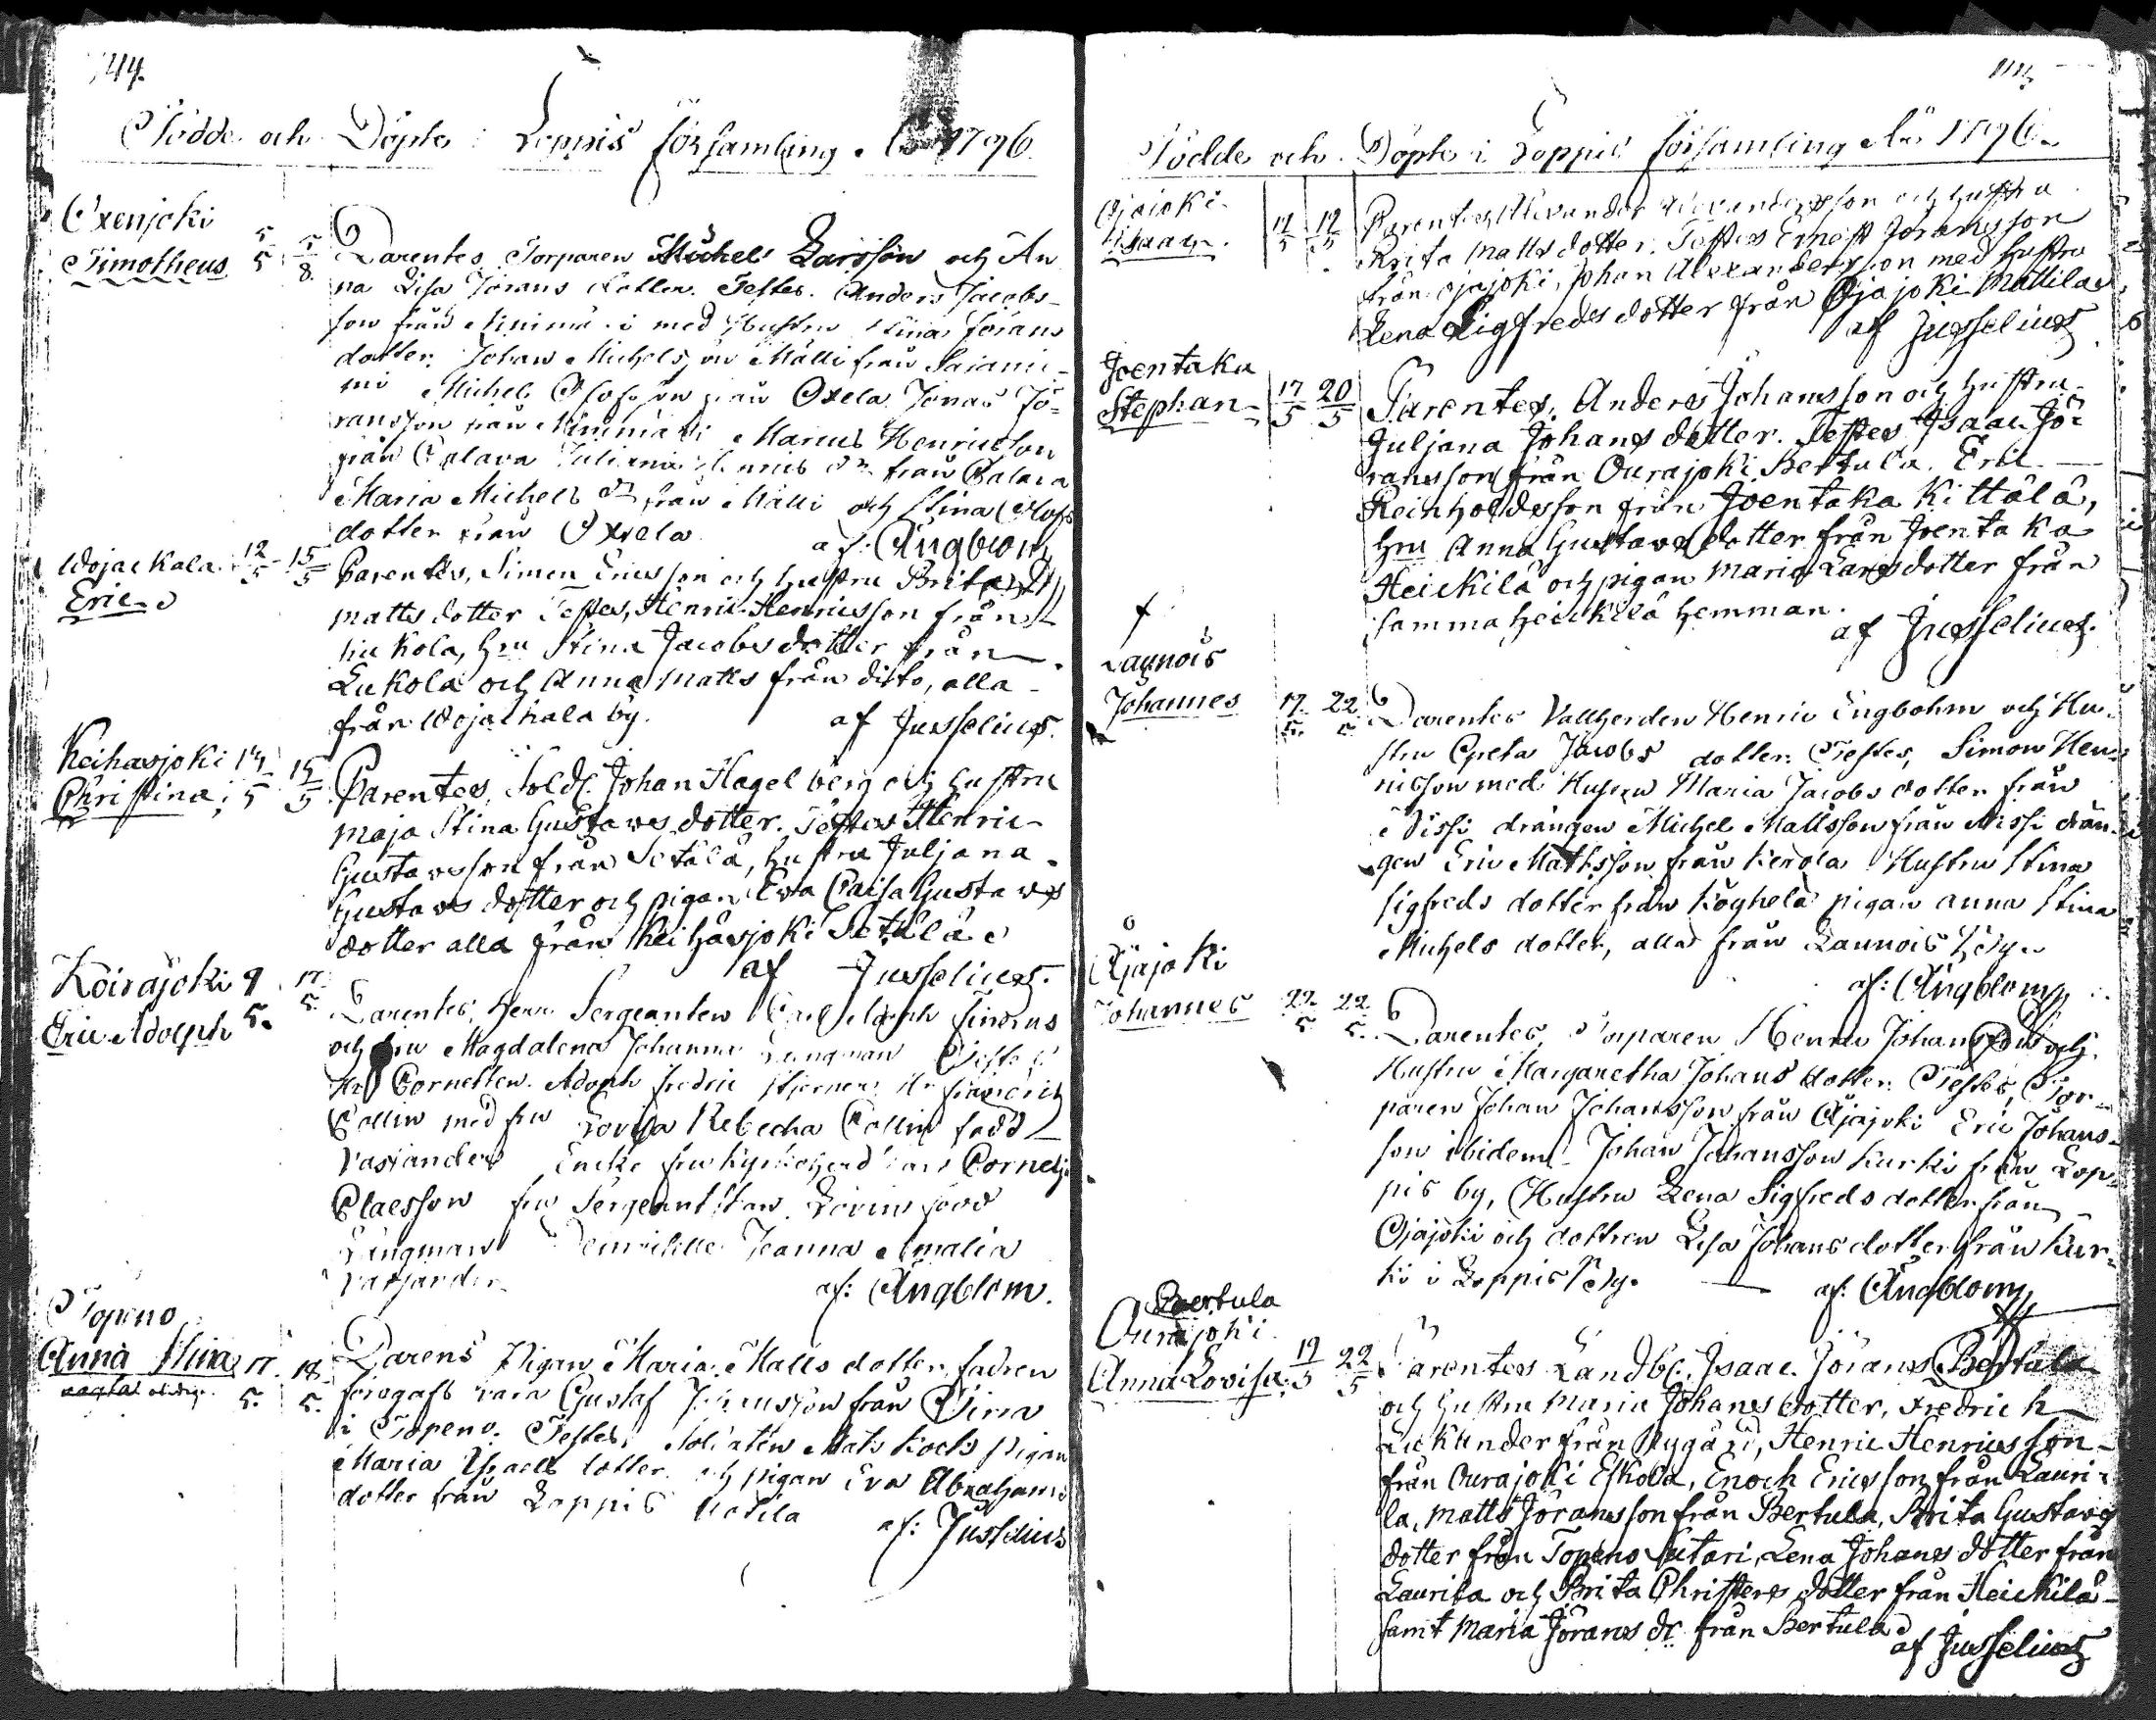 144.
Födde och Döpte i Loppis församling År 1796.
Oxenjoki
Timotheus 5/5 5/8
Parentes, Torparen Michel Larsson och An
na Lisa Jörans dotter. Testes. Anders Jacobs-
son från med Hustru Stina Jörans
dotter. Johan Michelsson Mälli från Sajani-
mi Michel Olofsson från Oxela Jonas Jö-
ransson från Marcus Henricsson
från Juliana från
Maria Michels dr från Mälli och Stina Olofs
dotter från Oxela
af: Ängblom
Wojackala 12/5 15/5
Eric
Parentes, Simon Ericsson och hustru Brita
Matts dotter Testes, Henric Henricsson från
Lukola, hru Stina Jacobs dotter från
Lukola och Anna Matts från dito, alla
från Wojackala by. af Jusselius.
Keihäsjoki 14/5 15/5
Christina
Parentes, Sold. Johan Hagelberg och hustru
Maja Stina Gustavs dotter. Testes Henric
Gustavsson från Setälä, hustru Juljana
Gustavs dotter och pigan Eva Caisa Gustavs
dotter alla från Keihäsjoki Setälä
af Jusselius.
Koirajoki 9/5 17/5
Eric Adolph
Parentes, Herr Sergeanten Carl Adolph
och fru Magdalena Johanna Längman Testes
Hr Cornetten Adolph Fredric Hr Friedrich
Collin med fru Lovisa Rebecka Collin född
Vasiander Encke fru
Claesson fru Sergeantskan född
Längman Jeanna Amalia
Vasiander
af: Ängblom.
Topeno
Anna Stina 17/5 18/5
oägta
Parens Pigan Maria Matts dotter fadren
föregafs vara Gustaf från
i Topeno. Testes, Soldaten Mats Kock Pigan
Maria Isracs dotter och pigan Eva Abrahams
dotter från Loppis
af: Jusselius
Födde och Döpte i Loppis församling År 1796.
Ojajoki 12/5 12/5
Isaac.
Parentes, Alexander Alexandersson och hustru
Brita Matts dotter. Testes Ernst Jöransson
från Ojajoki, Johan Alexandersson med hustru
Lena Sigfreds dotter från Ojajoki Mattila
af Jusselius
Joentaka
Stephan 17/5 20/5
Parentes, Anders Johansson och hustru
Juljana Johans dotter. Testes Isaac Jö-
ransson från Ourajoki Bertula. Eric
Reinholdsson från Joentaka Kittälä,
hru Anna Gustavs dotter från Joentaka
Heickilä och pigan Maria Lars dotter från
samma Heickilä hemman.
af Jusselius.
Launois
Johannes 17/5 22/5
Parentes Vallherden Henric Engbohm och Hu-
stru Greta Jacobs dotter. Testes, Simon Hen-
ricsson med Hustru Maria Jacobs dotter från
Nissi drängen Michel Mattsson från Nissi drän-
gen Eric Mattsson från Kerola Hustru Stina
Sigfreds dotter från pigan Anna Stina
Michels dotter, alla från Launois by.
af: Ängblom
Ojajoki
Johannes 22/5 22/5
Parentes, Torparen Henric Johansson och
Hustru Margaretha Johans dotter. Testes, Tor-
paren Johan Johansson från Ojajoki Eric Johans-
son ibidem Johan Johansson Kurki från Lop-
pis by, Hustru Lena Sigfreds dotter från
Ojajoki och dottren Lisa Johans dotter från Kur-
ki i Loppis by.
af: Ängblom
Bertula
Ourajoki
Anna Lovisa 19/5 22/5
Parentes Landb. Isaac Jörans Bertula
och hustru Maria Johans dotter, Fredrich
från Nygård, Henric Henricsson
från Ourajoki Eskola, Enoch Ericsson från Lauri-
la, Matts Jöransson från Bertula, Brita Gustavs
dotter från Topeno Sutari, Lena Johans dotter från
Laurila och Brita Christers dotter från Heickilä
samt Maria Jörans dr från Bertula
af Jusselius